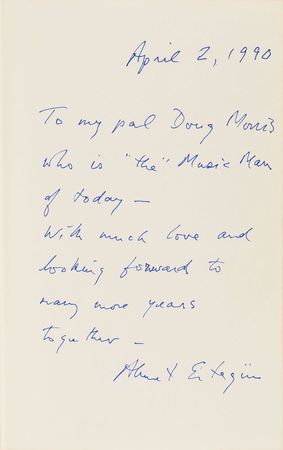 April 2, 1990
To my pal Doug Morris
who is "the" Music Man
of today —
With much love and
looking forward to
many more years
together —
Ahmet Ertegün